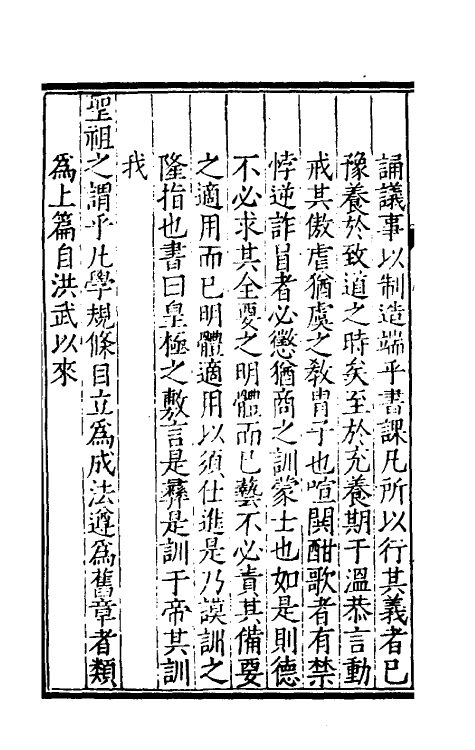 誦議事以制造端乎書課凡所以行其義者已
豫養於致道之時矣至於充養期于溫恭言動
戒其傲虐猶虞之敎胄子也喧鬨酣歌者有禁
悖逆詐冐者必懲猶商之訓蒙士也如是則德
不必求其全要之明體而已藝不必責其備要
之適用而已明體適用以須仕進是乃謨訓之
隆指也書曰皇極之敷言是彛是訓于帝其訓
我
聖祖之謂乎凡學規條目立爲成法遵爲舊章者類
爲上篇自洪武以來